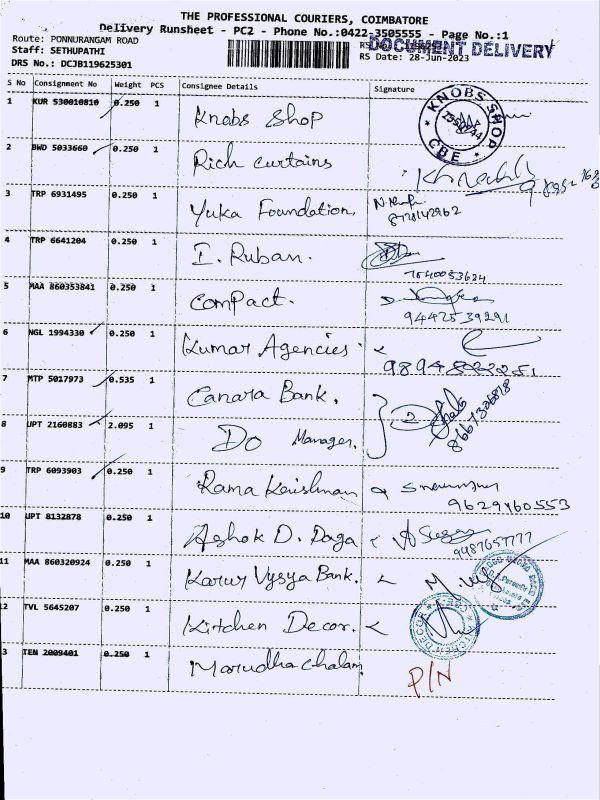 THE PROFESSIONAL COURIERS, COIMBATORE
Delivery Runsheet - PC2 - Phone No.:0422-3505555 - Page No.:1
Route: PONNURANGAM ROAD
DOCUMENT DELIVERY
Staff: SETHUPATHI
RS Date: 28-Jun-2023
DRS No.: DCJB119625301
S No Consignment No Weight PCS Consignee Details Signature
1 KUR 530010810 0.250 1 Knobs Shop
KNOBS SHOP CBE
2 BWD 5033660 0.250 1 Rich curtains
3 TRP 6931495 0.250 1 Yuka Foundation,
4 TRP 6641204 0.250 1 I. Ruban.
7540053624
5 MAA 860353841 0.250 1 Compact.
9442539291
6 NGL 1994330 0.250 1 Kumar Agencies
7 MTP 5017973 0.535 1 Canara Bank,
8 UPT 2160883 2.095 1 Do Manager.
9 TRP 6093903 0.250 1 Rama Krishnan
9629460553
10 UPT 8132878 0.250 1 Ashok D. Daga
9487657777
11 MAA 860320924 0.250 1 Karur Vysya Bank.
12 TVL 5645207 0.250 1 Kitchen Decor.
3 TEN 2009401 0.250 1 Marudhachalam
P/N